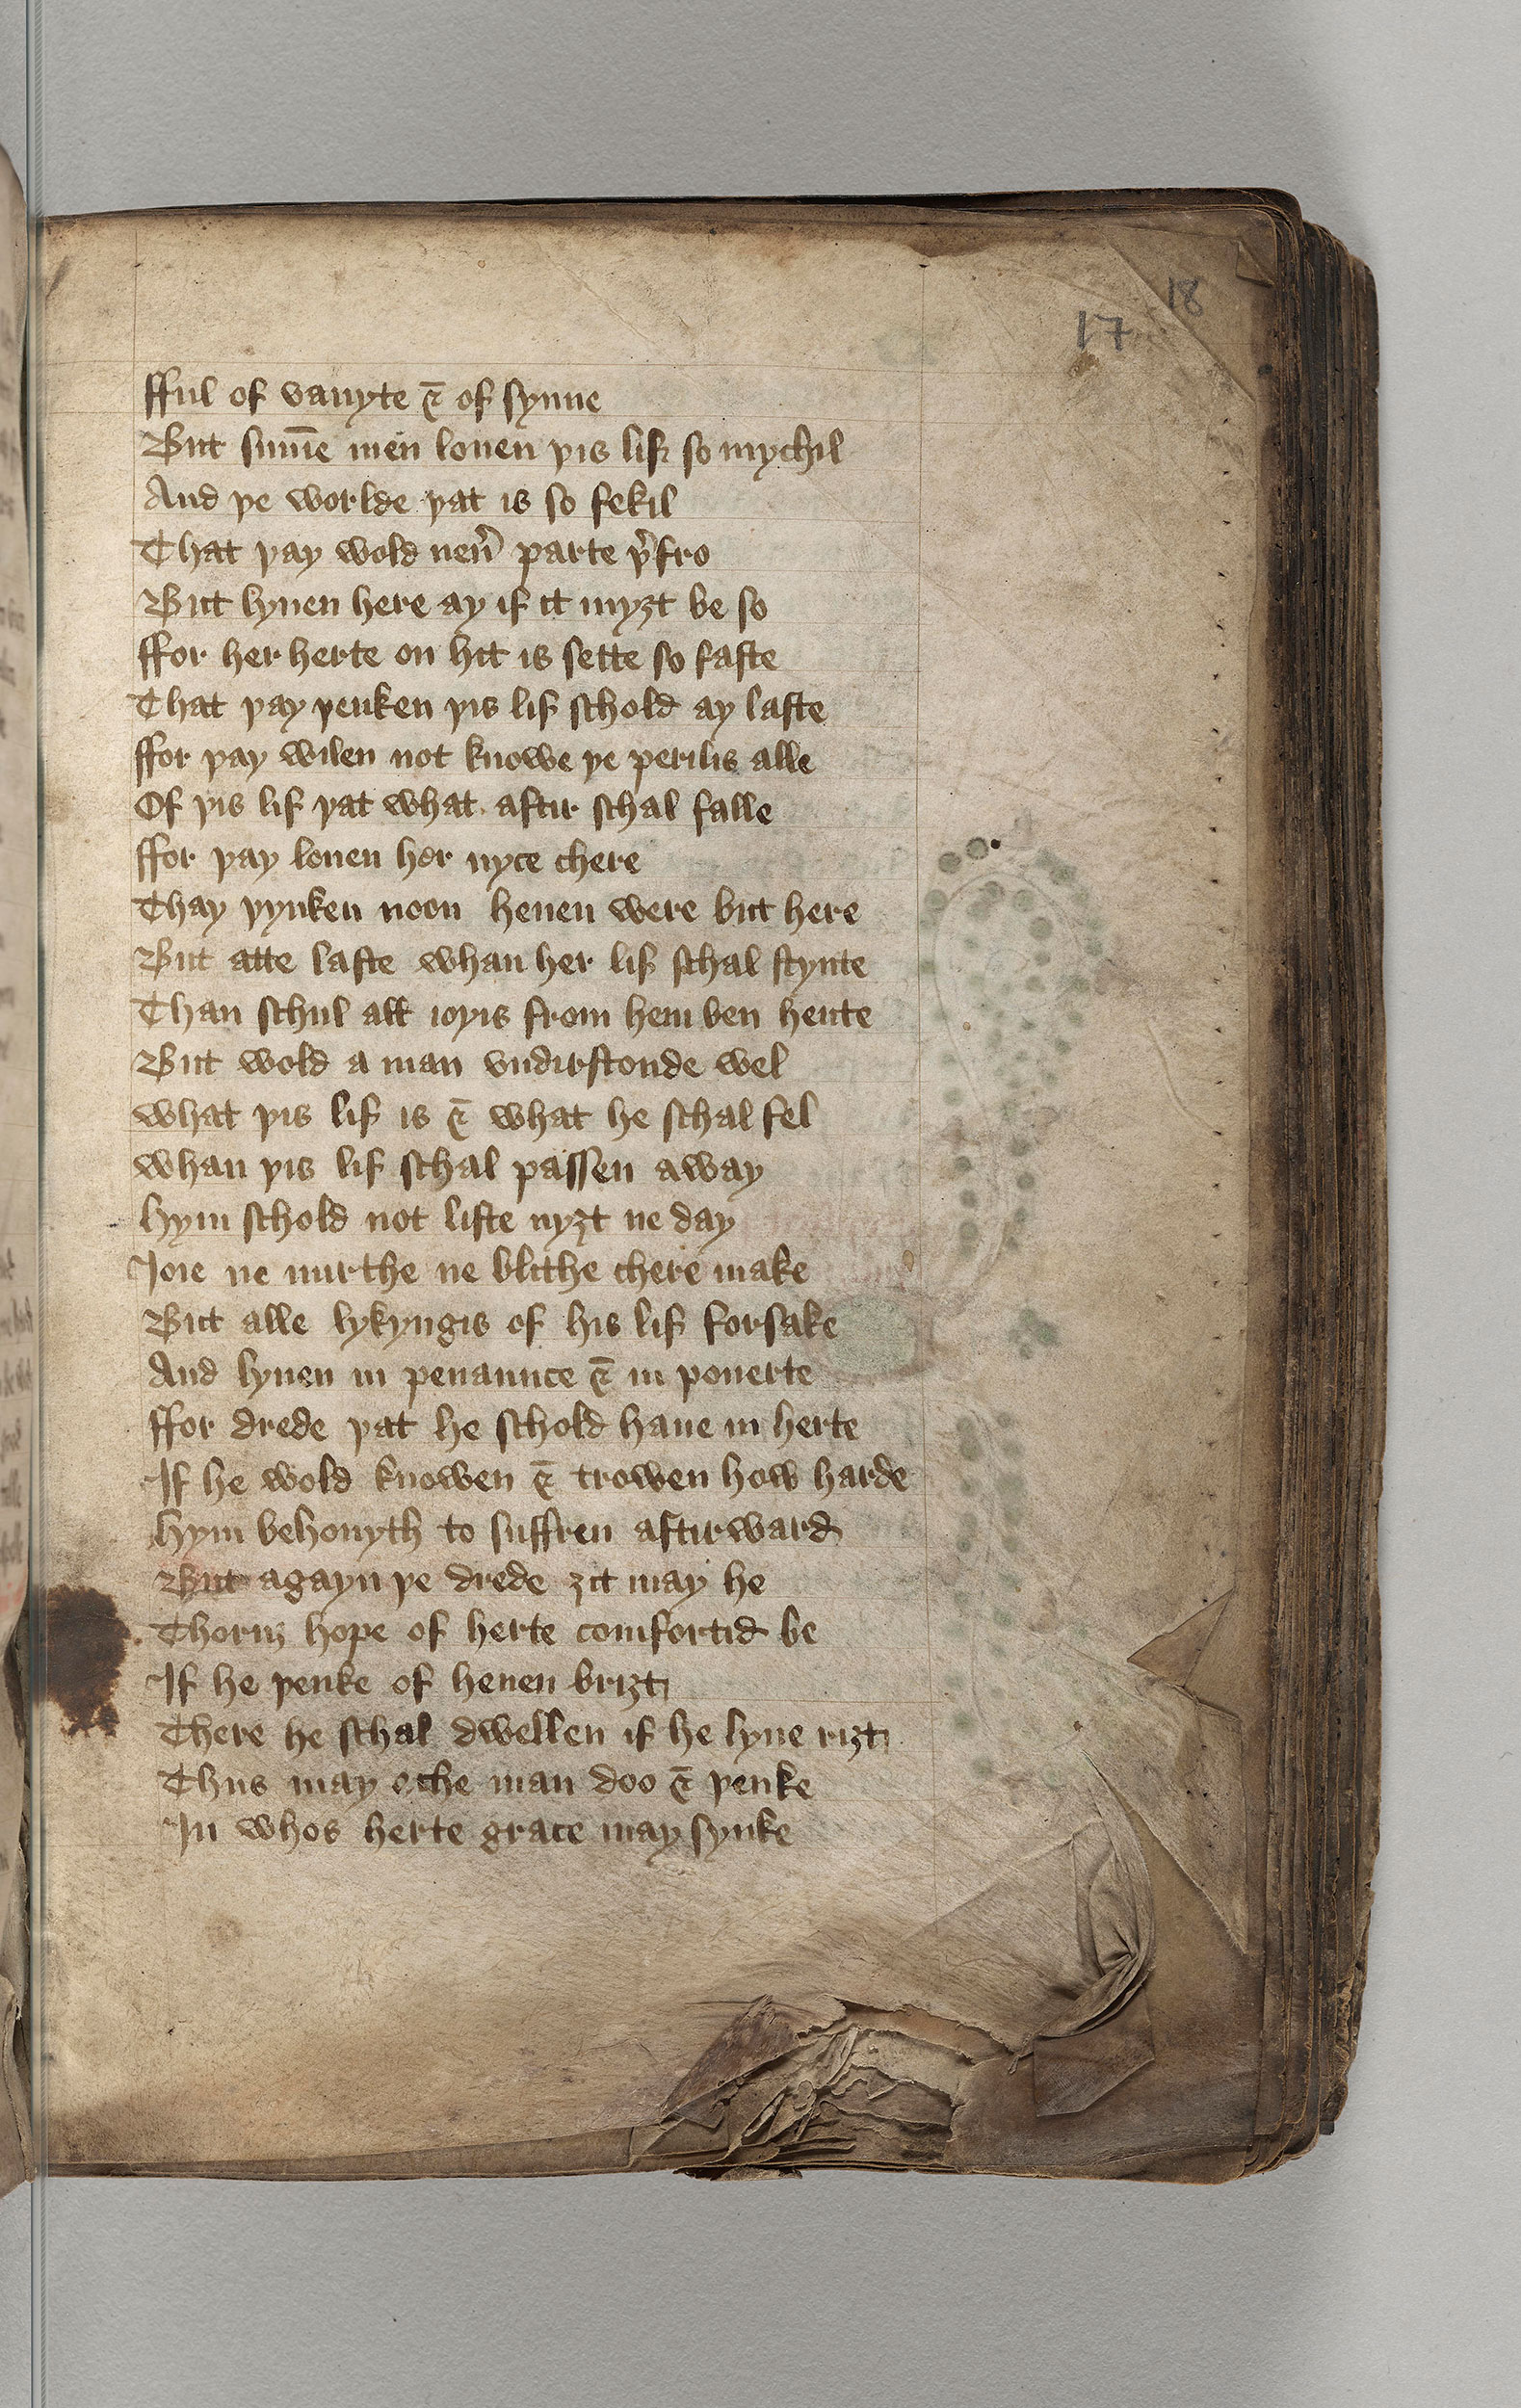 18
17
fful of vanyte & of synne
But summe men louen þis lif so mychil
And þe worlde þat is so fekil
That þay wold neu̓ parte þ̓fro
But lyuen here ay if it myȝt be so
ffor her herte on hit is sette so faste
That þay þenken þis lif schold ay laste
ffor þay wilen not knowe þe perilis alle
Of þis lif þat what aftir schal falle
ffor þay louen her nyce chere
Thay þynken noon heuen were but here
But atte laste whan her lif schal stynte
Than schul all ioyis from hem ben hente
But wold a man vndirstonde wel
what þis lif is & what he schal fel
whan þis lif schal passen away
hym schold not liste nyȝt ne day
Joie ne mirthe ne blithe chere make
But alle lykyngis of his lif forsake
And lyuen in penaunce & in pouerte
ffor drede þat he schold haue in herte
If he wold knowen & trowen how harde
hym behouyth to suffren aftirward
But agayn þe drede ȝit may he
Thoruȝ hope of herte comfortid be
If he þenke of heuen briȝt
There he schal dwellen if he lyue riȝt
Thus may eche man doo & þenke
In whos herte grace may synke